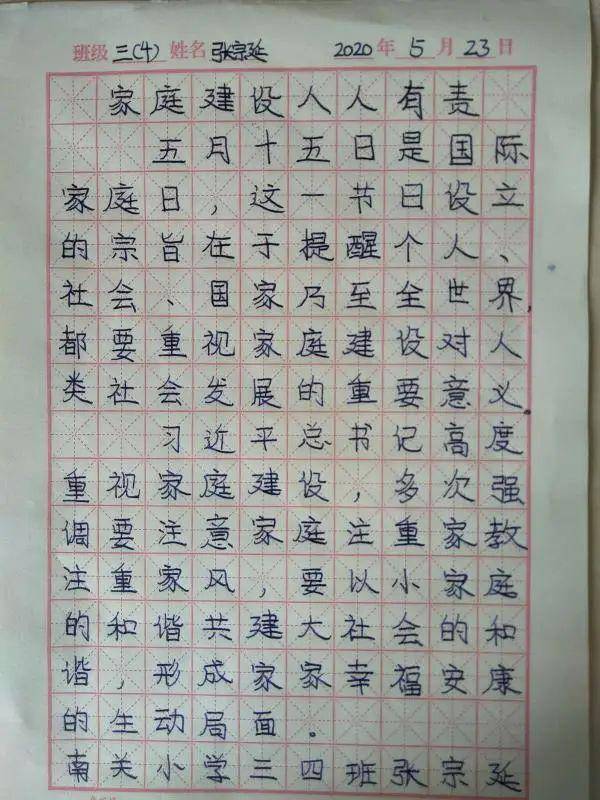 班级 三(4) 姓名 张宗延 2020年5月23日
家庭建设人人有责
五月十五日是国际
家庭日，这一节日设立
的宗旨在于提醒个人、
社会、国家乃至全世界，
都要重视家庭建设对人
类社会发展的重要意义。
习近平总书记高度
重视家庭建设，多次强
调要注意家庭注重家教
注重家风，要以小家庭
的和谐共建大社会的和
谐，形成家家幸福安康
的生动局面。
南关小学三四班张宗延